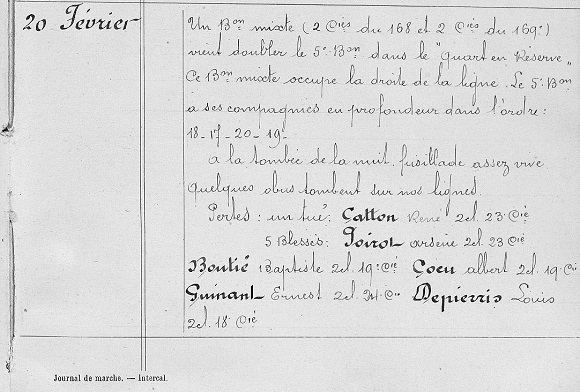 20 Février
Un Bon mixte (2 Cies du 168 et 2 Cies du 169e)
vient doubler le 5e Bon dans le "Quart en Réserve"
Ce Bon mixte occupe la droite de la ligne. Le 5e Bon
a ses compagnies en profondeur dans l'ordre :
18 - 17 - 20 - 19e
a la tombée de la nuit fusillade assez vive
quelques obus tombent sur nos lignes.
Pertes : un tué : Catton René 2cl. 23e Cie
5 Blessés : Poirot arsène 2cl. 23 Cie
Boutié Baptiste 2cl. 19e Cie Coeu albert 2cl. 19e Cie
Guinant Ernest 2cl. Cie Depierris Louis
2cl. 18e Cie
Journal de marche. — Intercal.